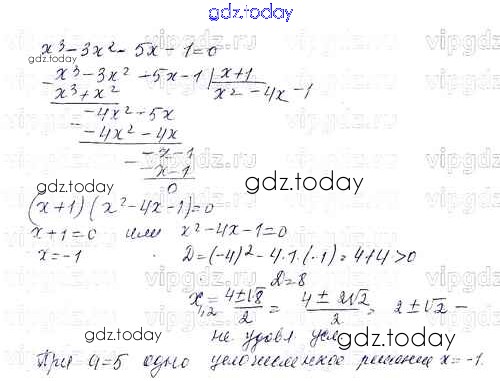 gdz.today
x³ - 3x² - 5x - 1 = 0
gdz.today
x³ - 3x² + 5x - 1 | x+1
x³ + x²
x² - 4x - 1
-4x² - 5x
-4x² - 4x
-x - 1
-x - 1
0
gdz.today
gdz.today
(x+1)(x² - 4x - 1) = 0
x+1=0 или x² - 4x - 1 = 0
x = -1 D = (-4)² - 4·1·(-1) = 4+4 > 0
D = 8
x₁,₂ = 4±√8/2 = 4±2√2/2 = 2±√2 -
не удовл усл
gdz.today
gdz.today
При 4=5 одно целочисленное решение x = -1.
vipgdz.ru